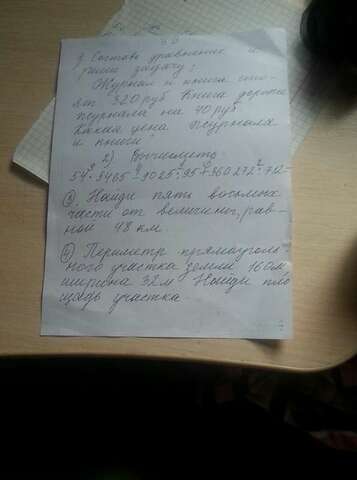 1) Составь уравнение и
реши задачу:
Журнал и книга сто-
ят 320 руб. Книга дороже
журнала на 40 руб.
Какая цена журнала
и книги
2) Вычислить
54 · 3465 - 9025 : 95 + 360272 : 712=
③ Найди пять восьмых
части от величины, рав-
ной 48 км
④ Периметр прямоуголь-
ного участка земли 160м
ширина 32м Найди пло
щадь участка.